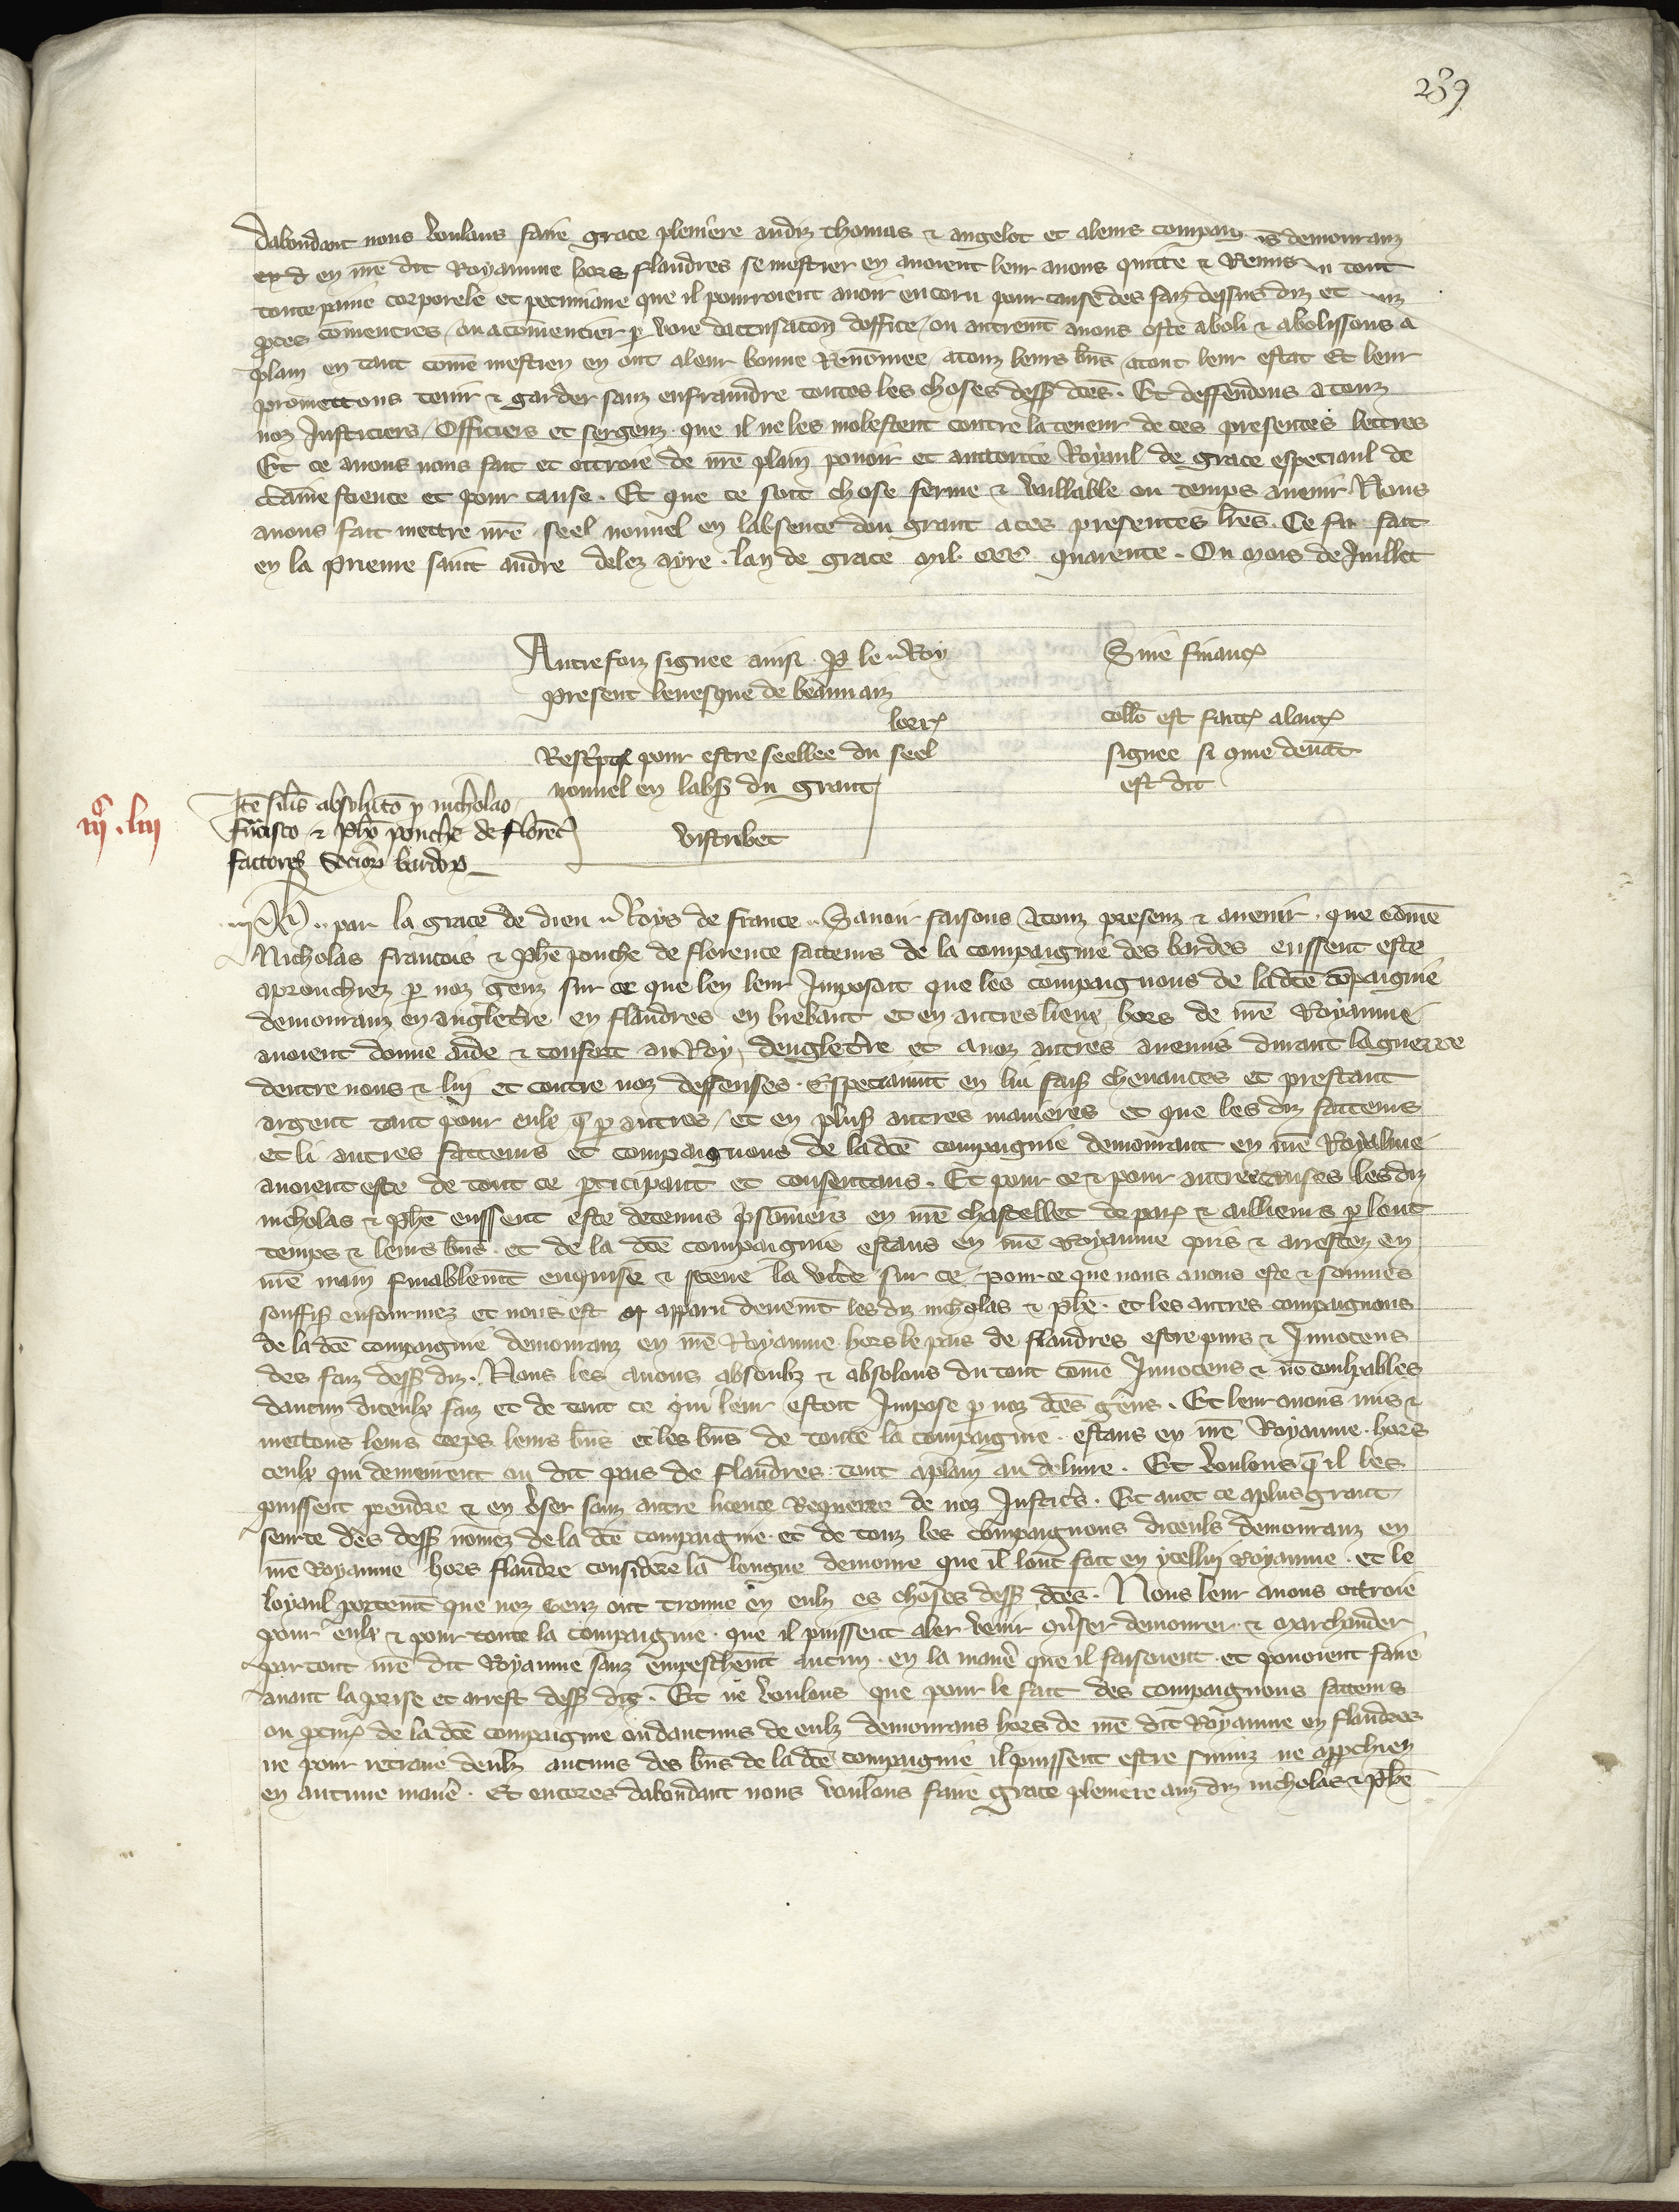 239
Dabondant nous voulans faire grace pleniere audiz thomas & angelot et aleurs compaig ns demouranz
en nre dit Royaume hors flandres se mestier en avoient leur avons quitte & Remis du tout
toute paine corporele et pecuniaire que il pourroient avoir encoru pour cause des faiz dessus diz et touz
proces comenciez / ou a comencier par voie daccusacon doffice / ou autremt avons oste aboli & abolissons a
plain en tant come mestier en ont aleur bonne Renomee / atouz leurs bns / atout leur estat Et leur
promettons tenir & garder sanz enfraindre toutes les choses dess dces . Et deffendons a touz
noz Justiciers / Officiers et sergenz . que il ne les molestent contre la teneur de ces presentes lettres
Et ce avons nous fait et ottroie de nre plain povoir et auctorite Royaul de grace especiaul de
certaine science et pour cause . Et que ce soit chose ferme & vaillable ou temps avenir Nous
avons fait mettre nre seel nouvel en labsence dou grant a ces presentes lres . Ce fu fait
en la Prieure saint andre delez ayre . lan de grace mil . ccc quarente . Ou mois de Juillet
Autrefoiz signee ainsi P le Roy
present levesque de beauvaiz
lorr
Rescpte pour estre seellee du seel
nouvel en labs du grant
vistrebec
Sine financ
collo est facta alanc
signee si que devat
est dit
iijc . liij
Ite silis absoluto p nicholao
francisco & Pho ponche de florec
factores societ bardor
Ph .. par la grace de dieu Roys de france .. Savoir faisons atouz presenz & avenir . que come
Nicholas francois & Phe ponche de florence facteurs de la compaignie des bardes eussent este
aprouchiez p noz genz sur ce que len leur Imposoit que les compaignons de ladce copaignie
demouranz en angletre en flandres en breban et en autres lieux hors de nre Royaume
avoient donne aide & confort au Roy dengletre et a noz autres anemis durant la guerre
dentre nous & lui et contre noz deffenses . Especiaumt en lui fais chevances et prestant
argent tant pour eulx q p autres / et en plus autres manieres et que les diz facteurs
et li autres facteurs et compaignons de ladce compaignie demourant en nre Royalme
avoient este de tout ce pticipant et consentans . Et pour ce & pour autres causes les diz
nicholas & Phe eussent este detenus prisoniers en nre chastellet de par & ailleurs p lonc
temps & leurs bns . et de la dce compaignie estans en nre Royaume pris & arrestez en
nre main finablemt enquise & sceue la verite sur ce pour ce que nous avons este & sommes
souffis enfourmez et nous est apparu devemt les diz nicholas & Phe . et les autres compaignons
de la dce compaignie demouranz en nre Royaume hors le pais de flandres estre purs & Innocens
des faiz dess diz . Nous les avons absoulz & absolons du tout come Innocens & no coulpables
daucun diceulx faiz et de tout ce qui leur estoit Impose p noz dces gens . Et leur avons mis &
mettons leurs corps leurs bns et les bns de toute la compaignie . estans en nre Royaume . hors
ceulx qui demeurent ou dit pais de flandres . tout aplain au delivre . Et voulons q il les
puissent prendre & en user sanz autre licence Requerre de noz Justics . Et avec ce aplus grant
seurte des dess nomez de la dce compaignie et de touz les compaignons diceuls demouranz en
nre Royaume hors flandre considere la longue demoure que il lont fait en ycellui Royaume . et le
loyaul portemt que noz genz ont trouve en eulz es choses dess dces . Nous leur avons ottroie
pour eulx & pour toute la compaignie . que il puissent aler venir coverser demourer & marchander
par tout nre dit Royaume sanz empeschemt aucun . en la manie que il faisoient . et povoient faire
avant la prise et arrest dess diz . Et ne voulons que pour le fait des compaignons facteurs
ou de la dce compaignie ou daucuns de eulz demourans hors de nre dit Royaume en flandres
ne pour retraire deulz aucuns des bns de la dce compaignie il puissent estre suiviz ne apprchiez
en aucune manie . Et encores dabondant nous voulons faire grace pleniere auz diz nicholas & Phe